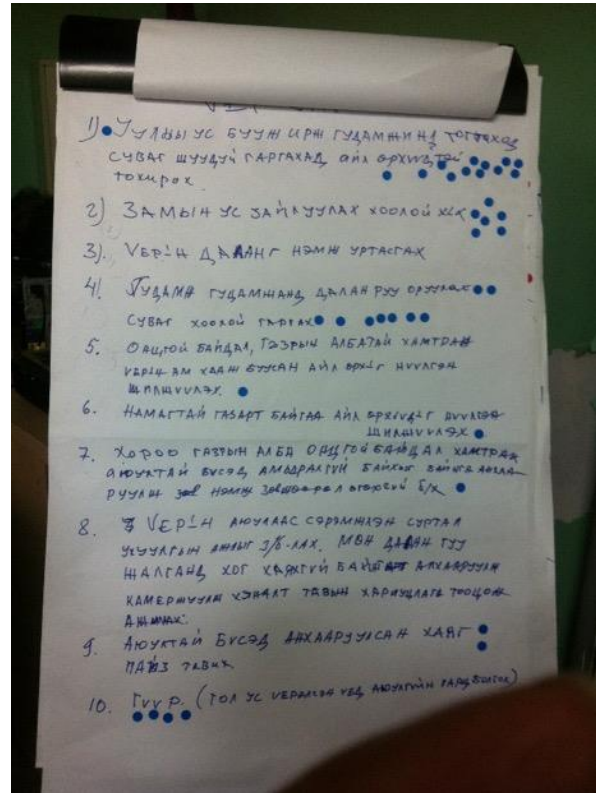 1) Уулын ус бууж ирж гудамжинд тогтоход
суваг шуудуу гаргахад айл өрхүүдтэй
тохирох
2) Замын ус зайлуулах хоолой хийх
3). Үерийн даланг нэмж уртасгах
4) Гудамж гудамжанд далан руу оруулах
суваг хоолой гаргах
5. Онцгой байдал, Газрын албатай хамтран
үерийн ам хааж буусан айл өрхийг нүүлгэн
шилжүүлэх.
6. Намагтай газарт байгаа айл өрхүүдийг нүүлгэн
шилжүүлэх
7. Хороо газрын алба онцгой байдал хамтран
аюултай бүсэд амьдралгүй байхыг анхаа
руулж нэмж зөвшөөрөл олгохгүй б/х
8. Үерийн аюулаас сэрэмжлэн сургал
ажлыг з/б-лах. Мөн далан гуу
жалганд хог хаяхгүй анхааруулж
камержуулж хяналт тавьж хариуцлага тооцож
ажиллах.
9. Аюултай бүсэд анхааруулсан хаяг
тавих
10. Гүүр. (Гол ус үерлэсэн үед аюулгүйн гарц болгох)